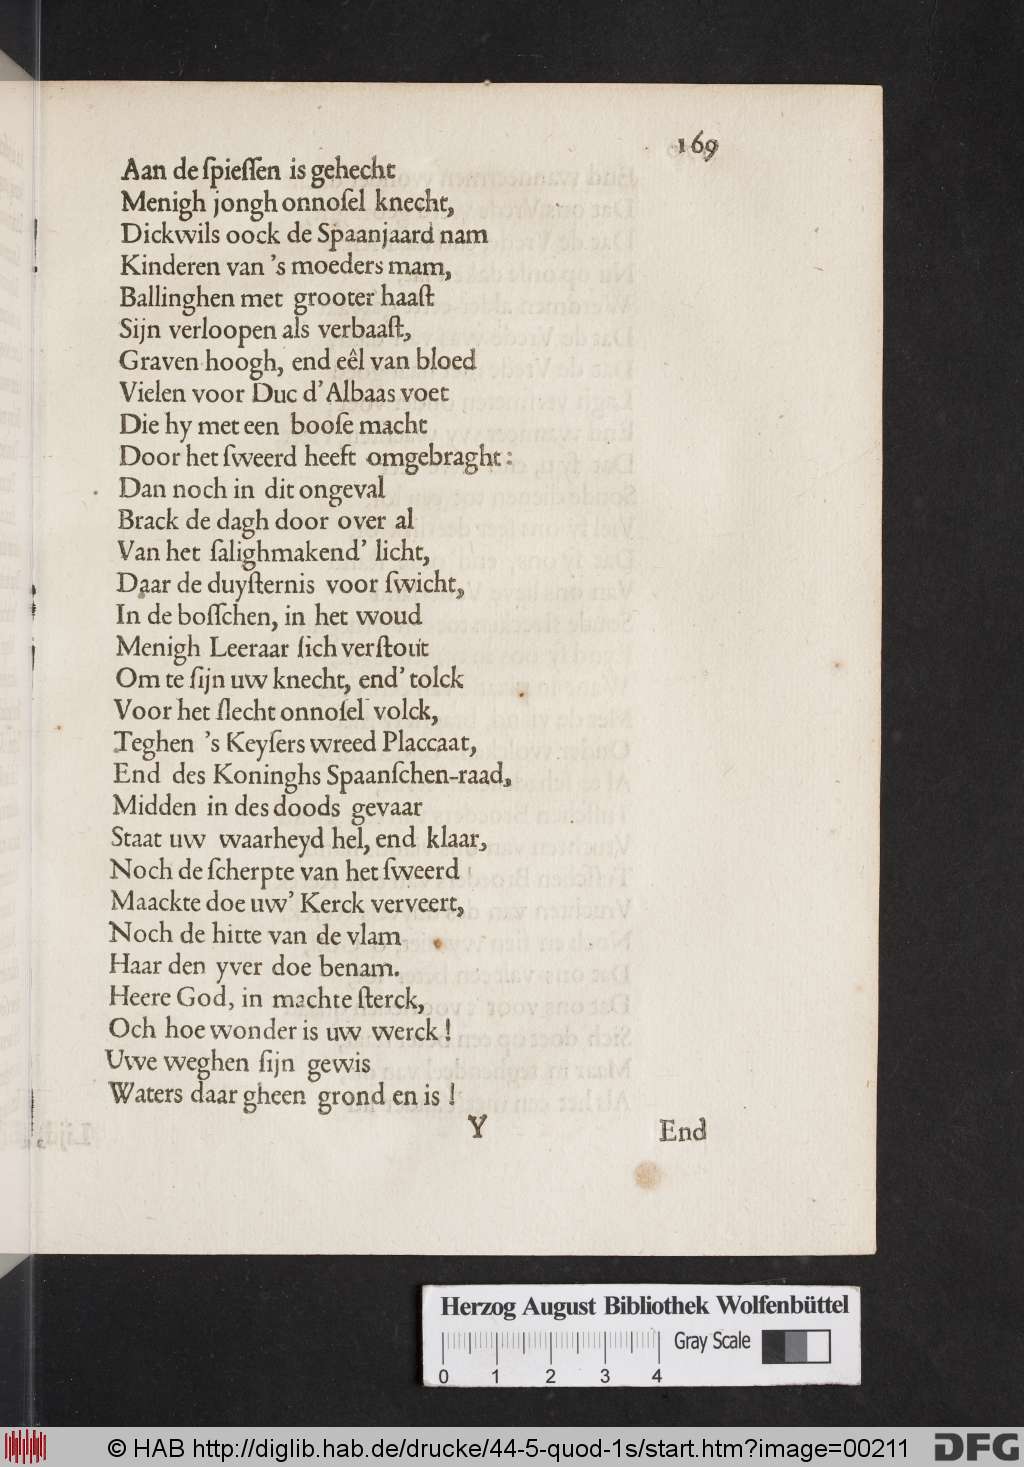 169
Aan de ſpieſſen is gehecht
Menigh jongh onnoſel knecht,
Dickwils oock de Spaanjaard nam
Kinderen van 's moeders mam,
Ballinghen met grooter haaſt
Sijn verloopen als verbaaſt,
Graven hoogh, end eêl van bloed
Vielen voor Duc d'Albaas voet
Die hy met een booſe macht
Door het ſweerd heeft omgebraght:
Dan noch in dit ongeval
Brack de dagh door over al
Van het ſalighmakend' licht,
Daar de duyſternis voor ſwicht,
In de boſſchen, in het woud
Menigh Leeraar ſich verſtout
Om te ſijn uw knecht, end' tolck
Voor het ſlecht onnoſel volck,
Teghen 's Keyſers wreed Placcaat,
End des Koninghs Spaanſchen-raad,
Midden in des doods gevaar
Staat uw waarheyd hel, end klaar,
Noch de ſcherpte van het ſweerd
Maackte doe uw' Kerck verveert,
Noch de hitte van de vlam
Haar den yver doe benam.
Heere God, in machte ſterck,
Och hoe wonder is uw werck!
Uwe weghen ſijn gewis
Waters daar gheen grond en is!
Y End
Herzog August Bibliothek Wolfenbüttel
Gray Scale
0 1 2 3 4
© HAB http://diglib.hab.de/drucke/44-5-quod-1s/start.htm?image=00211
DFG